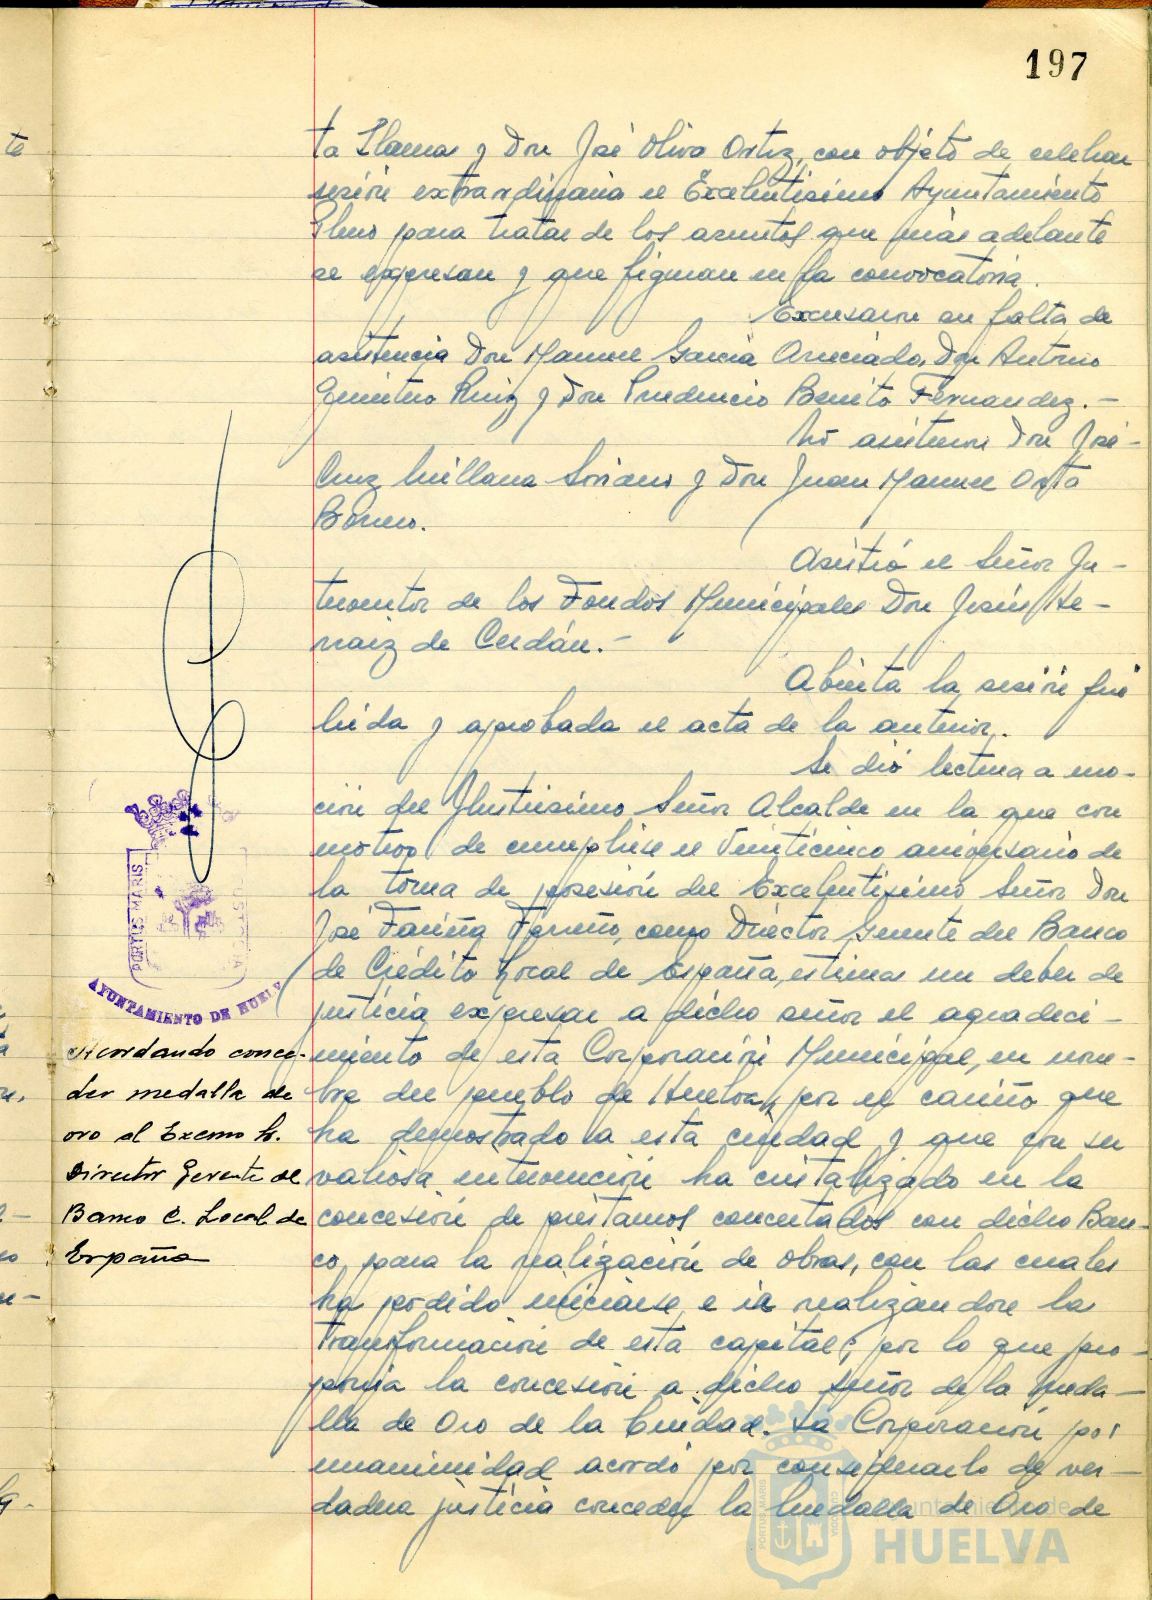 197
ta Llamas y Don José Oliva Ortiz, con objeto de celebrar
sesión extraordinaria el Excelentisimo Ayuntamiento
Pleno para tratar de los asuntos que más adelante
se expresan y que figuran en la convocatoria.
Excusaron su falta de
asistencia Don Manuel Garcia Don Antonio
Quintero Ruiz y Don Prudencio Benito Fernandez.-
No asistieron Don José
Cruz Millana Soriano y Don Juan Manuel Orta
Borrero.
Asistió el Señor In-
terventor de los Fondos Municipales Don Jesús He-
rraiz de Cerdán.-
Abierta la sesión fué
leida y aprobada el acta de la anterior.
Se dió lectura a mo-
ción del Ilustrisimo Señor Alcalde en la que con
motivo de cumplirse el Veinticinco aniversario de
la toma de posesión del Excelentisimo Señor Don
José Fariña Ferreño, como Director Gerente del Banco
de Crédito Local de España, estimas un deber de
justicia expresar a dicho señor el agradeci-
miento de esta Corporación Municipal, en nom-
bre del pueblo de Huelva, por el cariño que
ha demostrado a esta ciudad y que por su
valiosa intervención ha cristalizado en la
concesión de préstamos concertados con dicho Ban-
co, para la realización de obras, con las cuales
ha podido iniciarse e ir realizándose la
transformación de esta capital; por lo que pro-
ponia la concesión a dicho Señor de la Meda-
lla de Oro de la Ciudad. La Corporación por
unanimidad acordó por considerarlo de ver-
dadera justicia conceder la Medalla de Oro de
PORTUS MARIS
AYUNTAMIENTO DE HUELV
Acordando conce-
der medalla de
oro al Excmo Sr.
Director Gerente del
Banco C. Local de
España
Ayuntamiento de
HUELVA